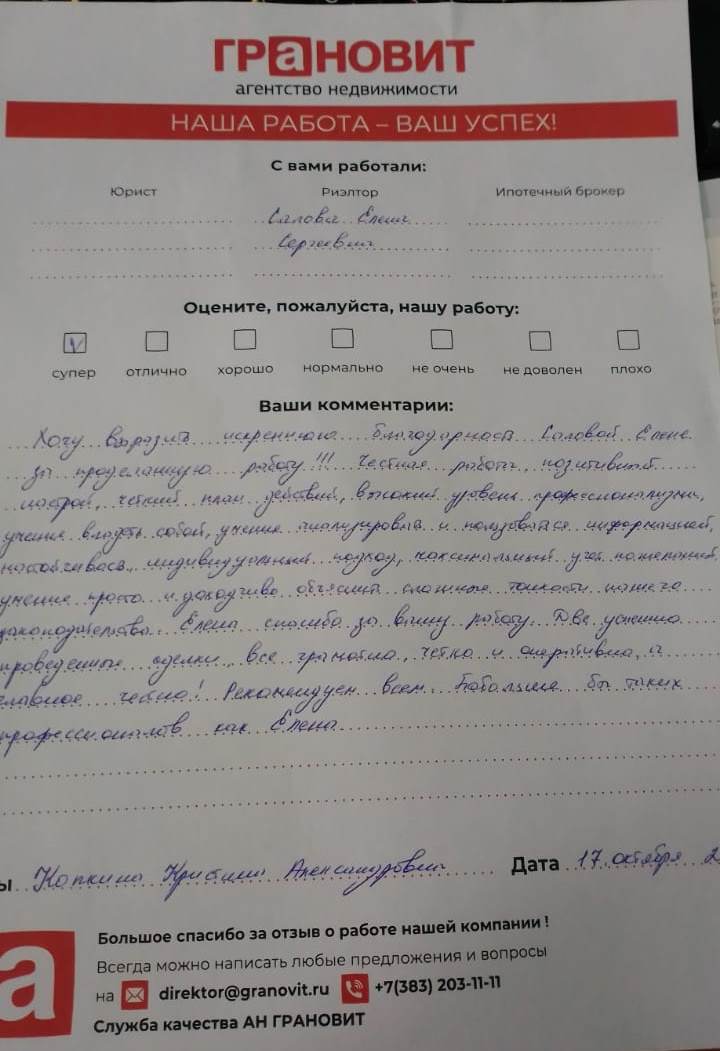 ГРаНОВИТ
агентство недвижимости
НАША РАБОТА – ВАШ УСПЕХ!
С вами работали:
Юрист Риэлтор Ипотечный брокер
Салова Елена
Сергеевна
Оцените, пожалуйста, нашу работу:
супер отлично хорошо нормально не очень не доволен плохо
Ваши комментарии:
Хочу выразить искреннюю благодарность Саловой Елене
за проделанную работу!!! Честная работа, позитивный
настрой, четкий план действий, высокий уровень профессионализма,
умение владеть собой, умение анализировать и пользоваться информацией,
настойчивость, индивидуальный подход, максимальный учет пожеланий
умение просто и доходчиво объяснить сложные тонкости нашего
законодательства. Елена спасибо за вашу работу. Две успешно
проведенные сделки, все грамотно, четко и оперативно, а
главное честно! Рекомендуем всем. Побольше бы таких
профессионалов как Елена
ы Кристина Александровна Дата 17 октября 2
Большое спасибо за отзыв о работе нашей компании!
Всегда можно написать любые предложения и вопросы
на direktor@granovit.ru +7(383) 203-11-11
Служба качества АН ГРАНОВИТ
а